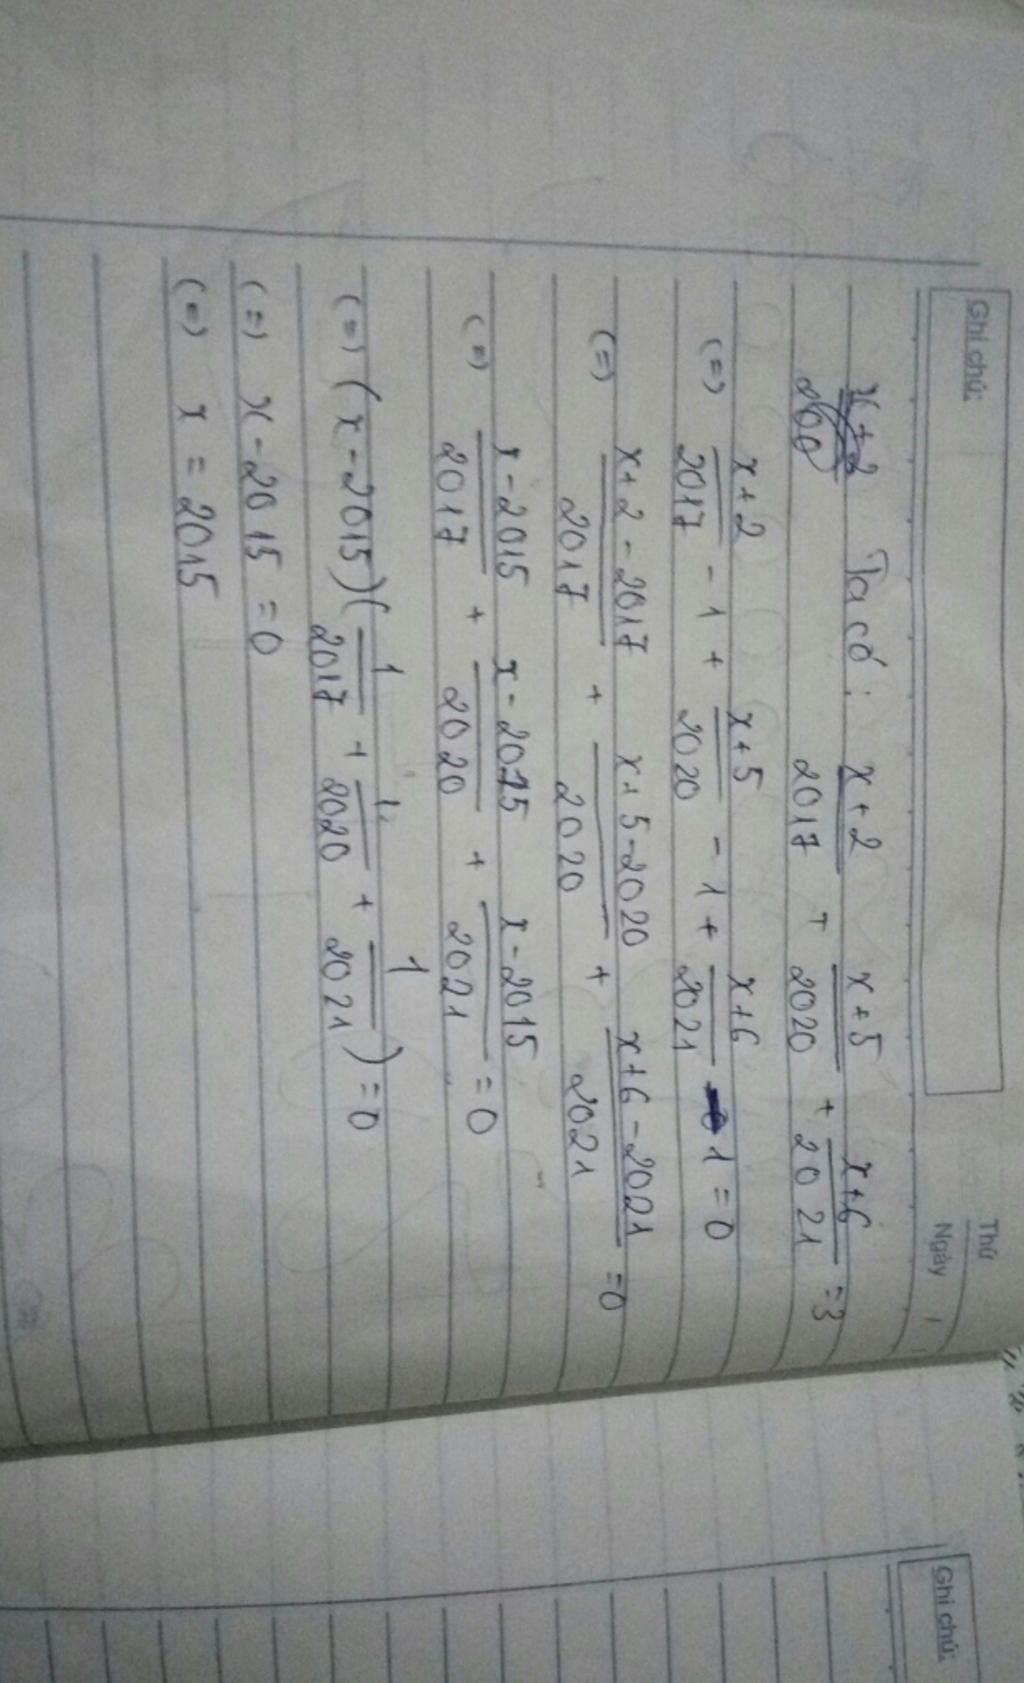 Ghi chú:
Thứ
Ngày /
Ta có: (x+2)/2017 + (x+5)/2020 + (x+6)/2021 = 3
(=) (x+2)/2017 - 1 + (x+5)/2020 - 1 + (x+6)/2021 - 1 = 0
(=) (x+2-2017)/2017 + (x+5-2020)/2020 + (x+6-2021)/2021 = 0
(=) (x-2015)/2017 + (x-2015)/2020 + (x-2015)/2021 = 0
(=) (x-2015)(1/2017 + 1/2020 + 1/2021) = 0
(=) x-2015 = 0
(=) x = 2015
Ghi chú: